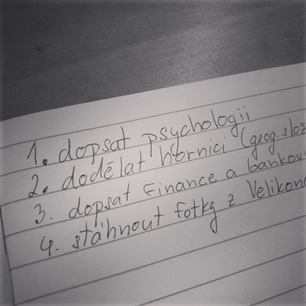 1. dopsat psychologii
2. dodělat horníci (geog.slož
3. dopsat Finance a bankovn
4. stáhnout fotky z Velikon